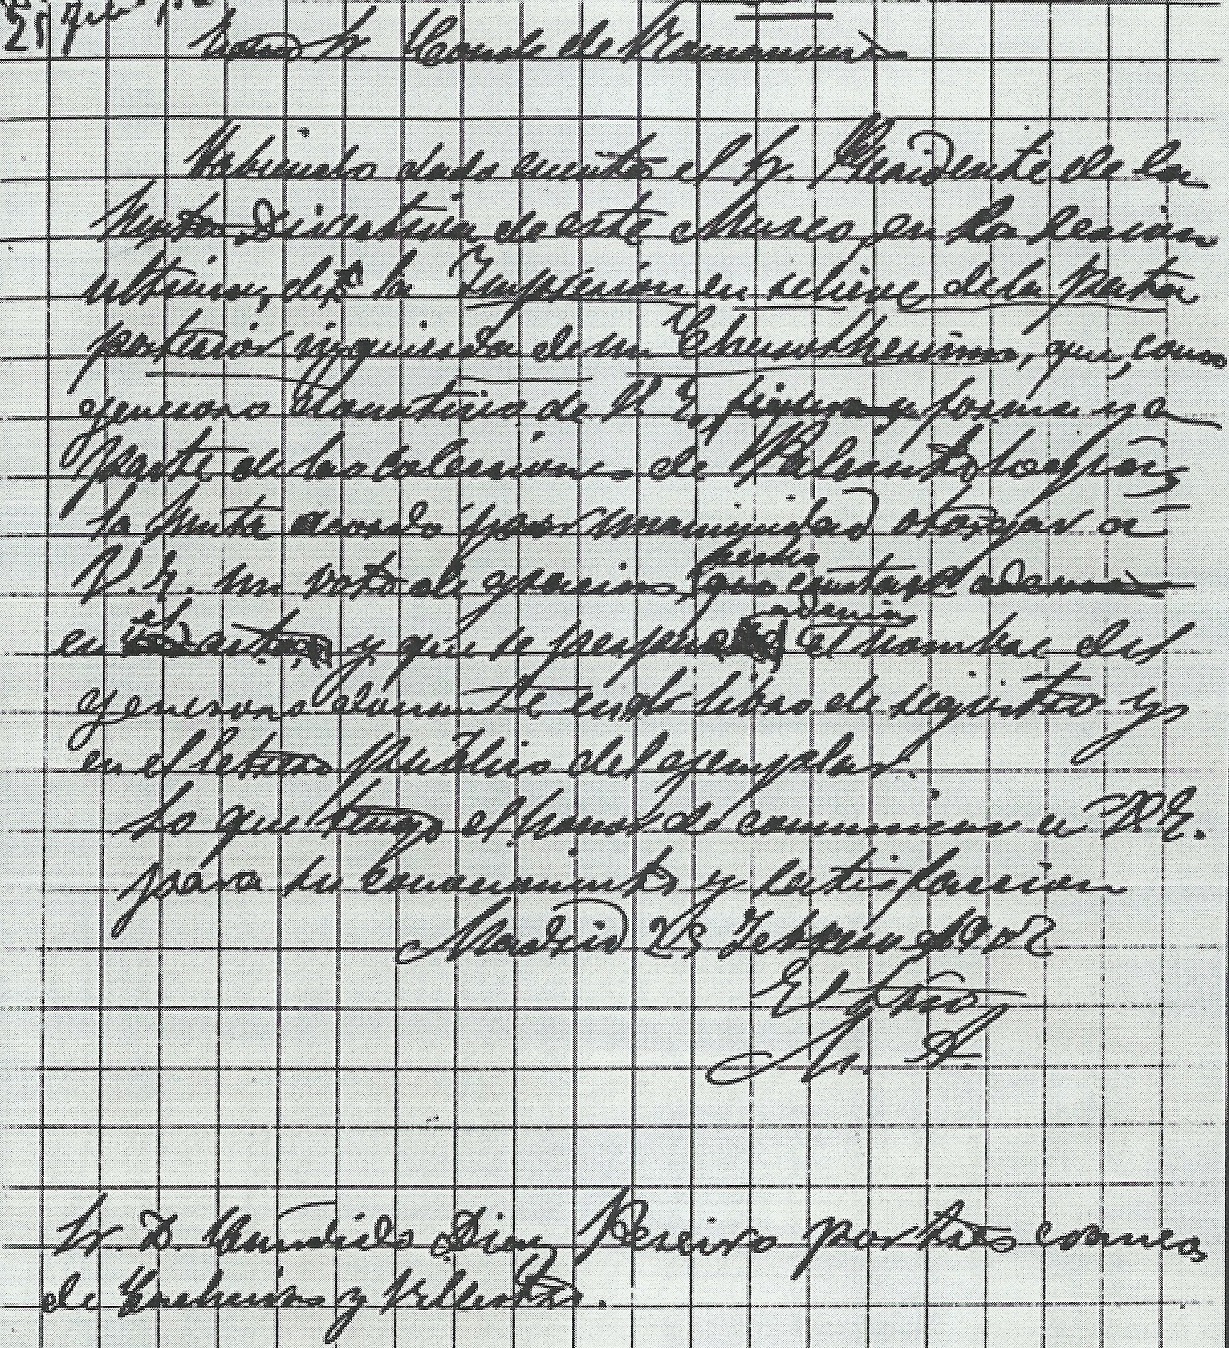 25 Feb
Excmo Sr. Conde de Romanones
Habiendo dado cuenta el Sr. Presidente de la
Junta Directiva de este Museo, en la sesion
ultima, de la Impresion en relieve de la pata
posterior izquierda de un Cheirotherium, que, como
generoso donativo de V. E, forma ya
parte de las colecciones de Paleontologia,
la Junta acordó por unanimidad otorgar á
V. E. un voto de gracias, que constase
en el acta y que se perpetúe además el nombre del
generoso donante en el libro de registro y
en el letrero público del ejemplar.
Lo que tengo el honor de comunicar a V.E.
para su conocimiento y satisfaccion
Madrid 25 Febrero 1902
El Srio
M. A.
Sr. D. Candido Diaz Pereiro por tres cornea
de y